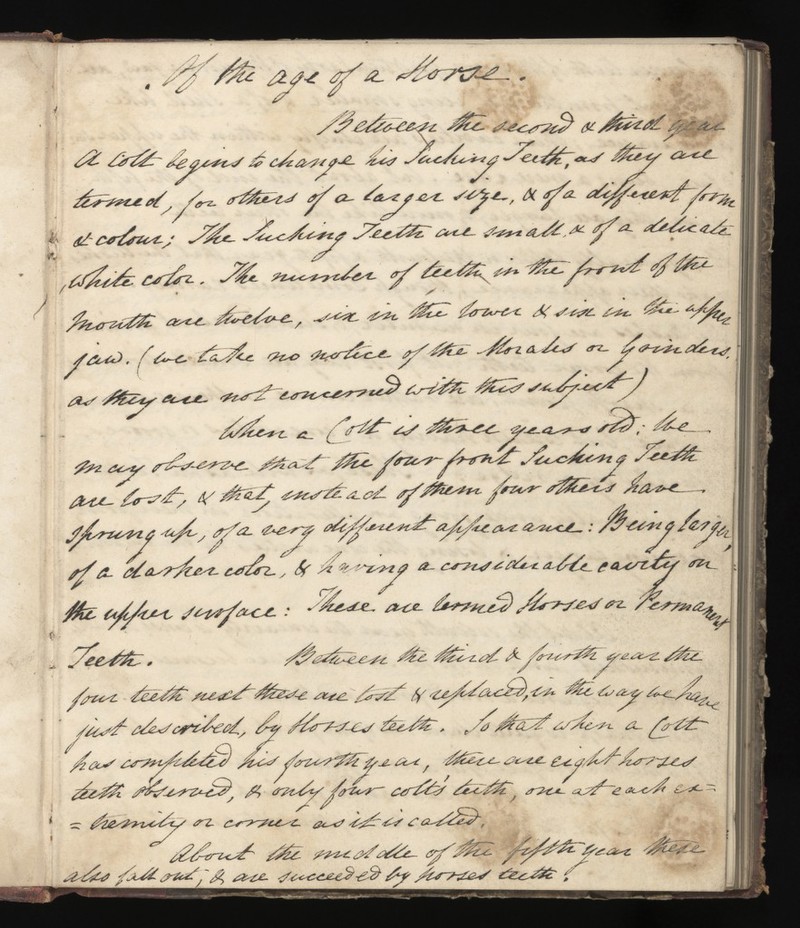 . Of the age of a Horse.
Between the second & third year
A Colt begins to change his Sucking Teeth, as they are
termed, for others of a larger size, & of a different form
& colour; The Sucking Teeth are small & of a delicate
white color. The number of teeth in the front of the
Mouth are twelve, six in the lower & six in the upper
jaw. (we take no notice of the Morales or Grinders,
as they are not concerned with this subject)
When a Colt is three years old: We
may observe that the four front Sucking Teeth
are lost, & that, instead of them four others have
sprung up, of a very different appearance: Being larger,
of a darker color, & having a considerable cavity on
the upper surface: These are termed Horses or Permanent
Teeth. Between the third & fourth year the
four teeth next these are lost & replaced, in the way we have
just described, by Horses teeth. So that when a Colt
has completed his fourth year, there are eight horses
teeth observed, & only four colt's teeth, one at each ex=
=tremity or corner as it is called.
About the middle of the fifth year these
also fall out, & are succeeded by horses teeth.